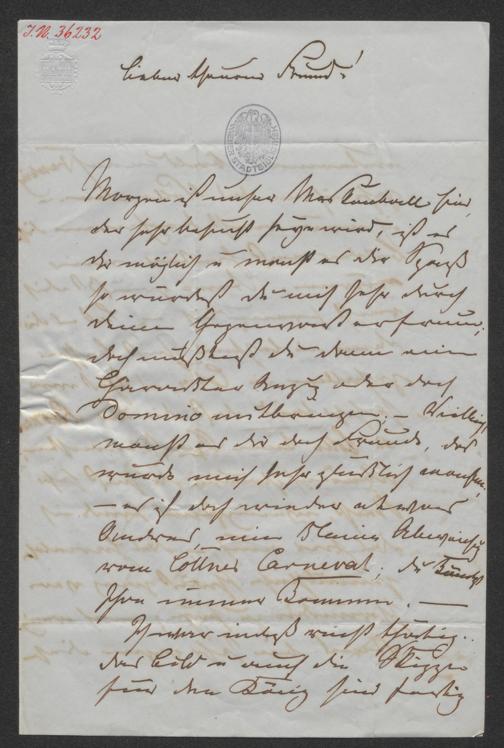 J.N. 36232
Lieber theurer Freund!
Morgen ist unser Maskenball hier,
der sehr besucht seyn wird, ist es
dir möglich u macht es dir Spaß
so würdest du mich sehr durch
deine Gegenwart erfreuen,
doch müßtest du dann einen
Character Anzug oder doch
Domino mitbringen. – Vielleicht
macht es dir doch Freude, das
würde mich sehr glücklich machen,
– es ist doch wieder etwas
Anderes, eine kleine Abweichung
vom Cöllner Carneval,
immer kommen. —
Ich war indeß recht thätig.
das Bild u auch die Skizze
für den König sind fertig